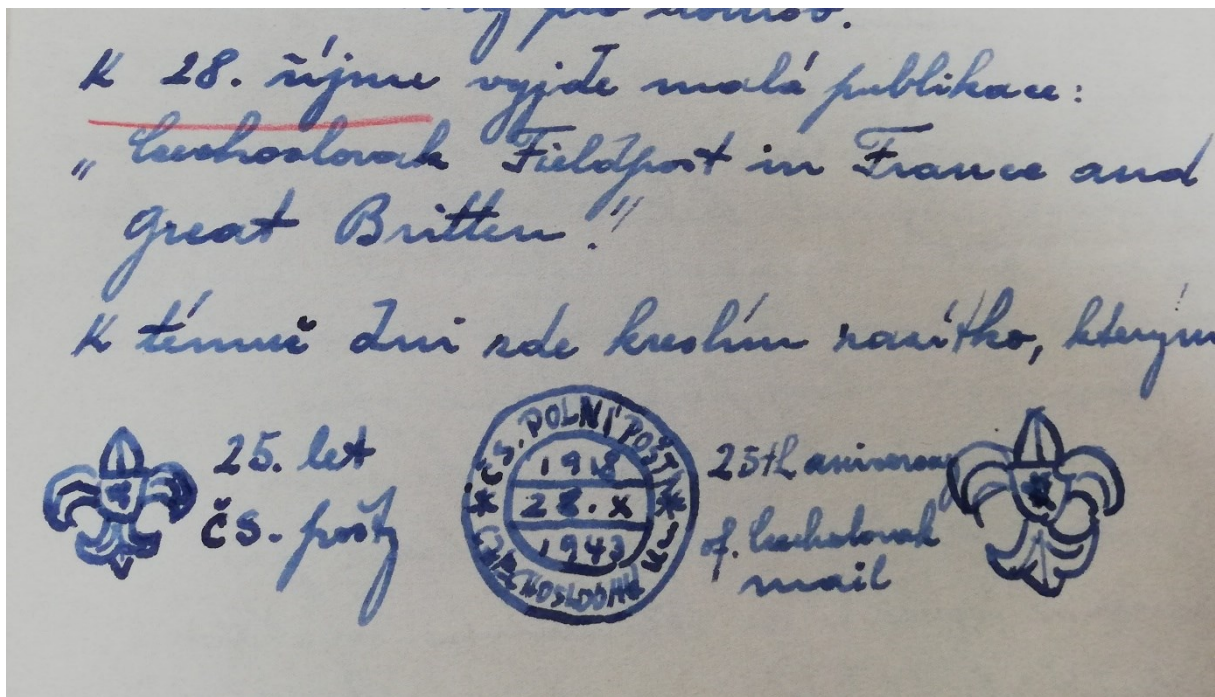 pro domov.
K 28. říjnu vyjde malá publikace:
„Czechoslovak Fieldpost in France and
Great Britten."
K témuž dni zde kreslím razítko, kterým
25. let
ČS. pošty
ČS. POLNÍ POŠTA
1918
28. X
1943
25th aniversary
of. Czechoslovak
mail